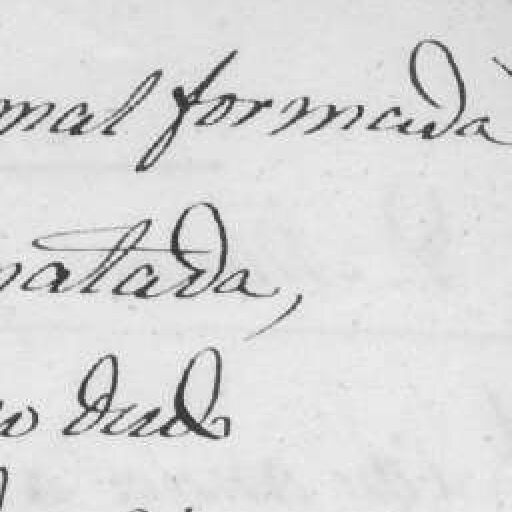 mal formada
natada,
o dud